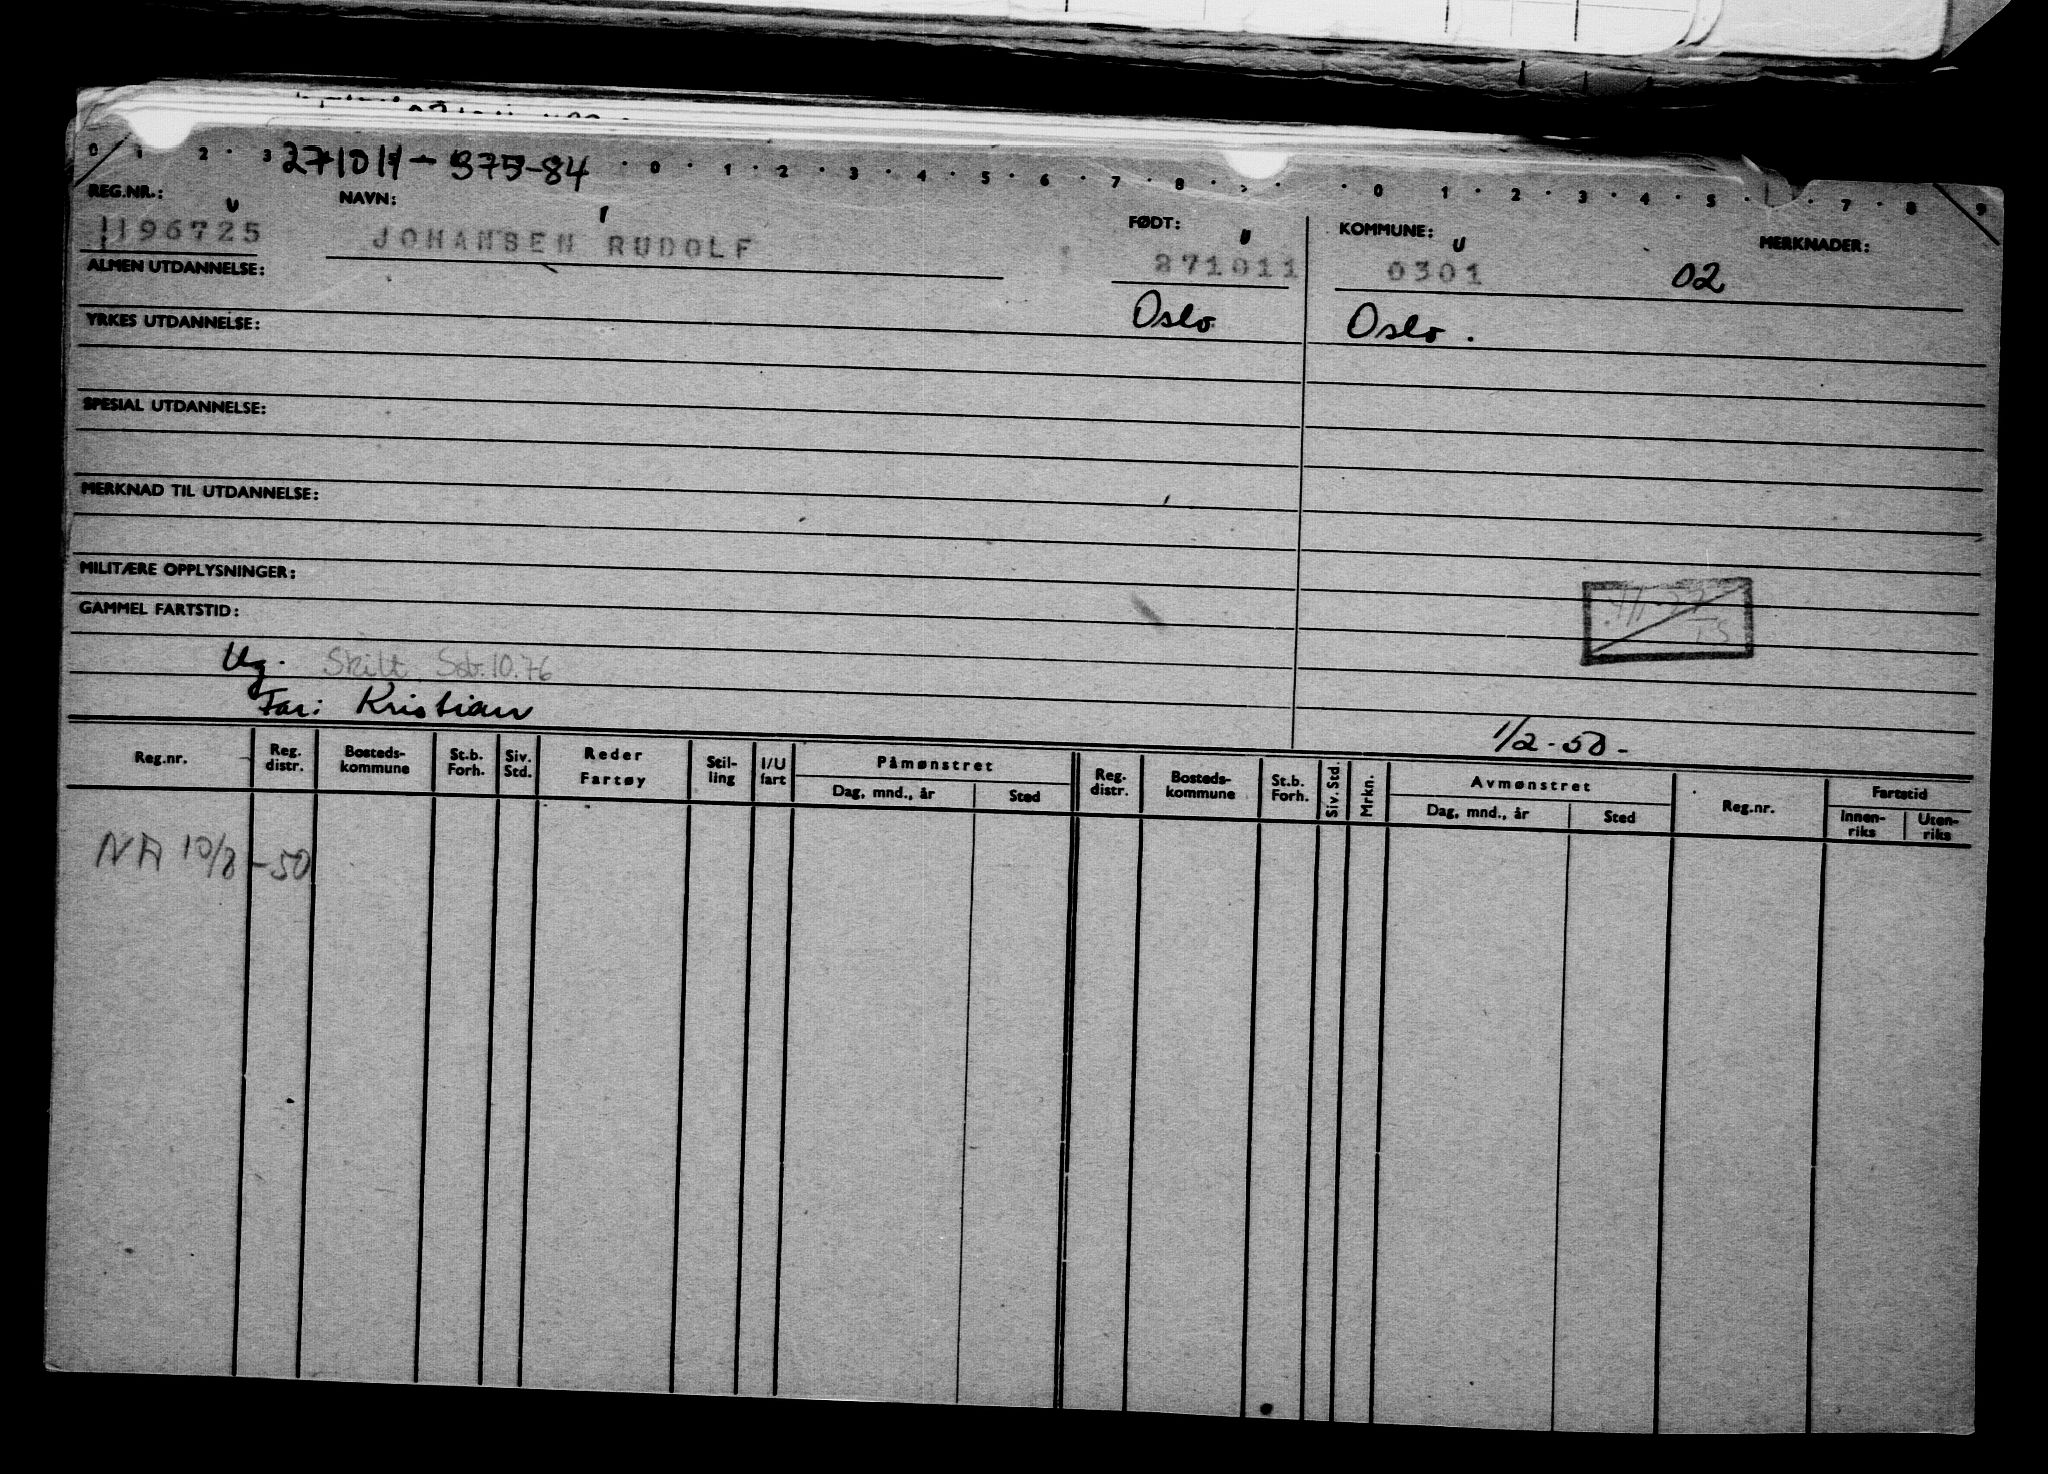 0 1 2 · 3 271011 - 375-84 · 0 · 1 · 2 · 3 · 4 · 5 · 6 · 7 · 8 · · · 0 · 1 · 2 · 3 · 4 · 5 · · 7 · 8 · 9
REG.NR.: NAVN: FØDT: KOMMUNE: MERKNADER:
1196725 JOHANSEN RUDOLF 271011 0301 02
ALMEN UTDANNELSE:
Oslo Oslo.
YRKES UTDANNELSE:
SPESIAL UTDANNELSE:
MERKNAD TIL UTDANNELSE:
MILITÆRE OPPLYSNINGER:
GAMMEL FARTSTID:
Ug. Skilt 10.76
Far: Kristian
1/2-50-
Reg.nr. Reg. distr. Bosteds-kommune St.b. Forh. Siv. Std. Reder Fartøy Stil-ling I/U fart Påmønstret Dag, mnd., år Sted Reg. distr. Bosteds-kommune St.b. Forh. Siv. Std. Mrkn. Avmønstret Dag, mnd., år Sted Reg.nr. Fartstid Innen-riks Uten-riks
NA 10/8-50